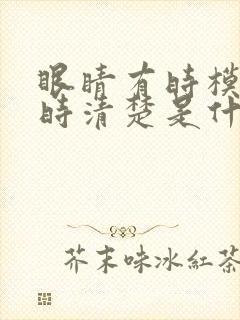 眼睛有時模
時清楚是什
芥末味冰紅茶